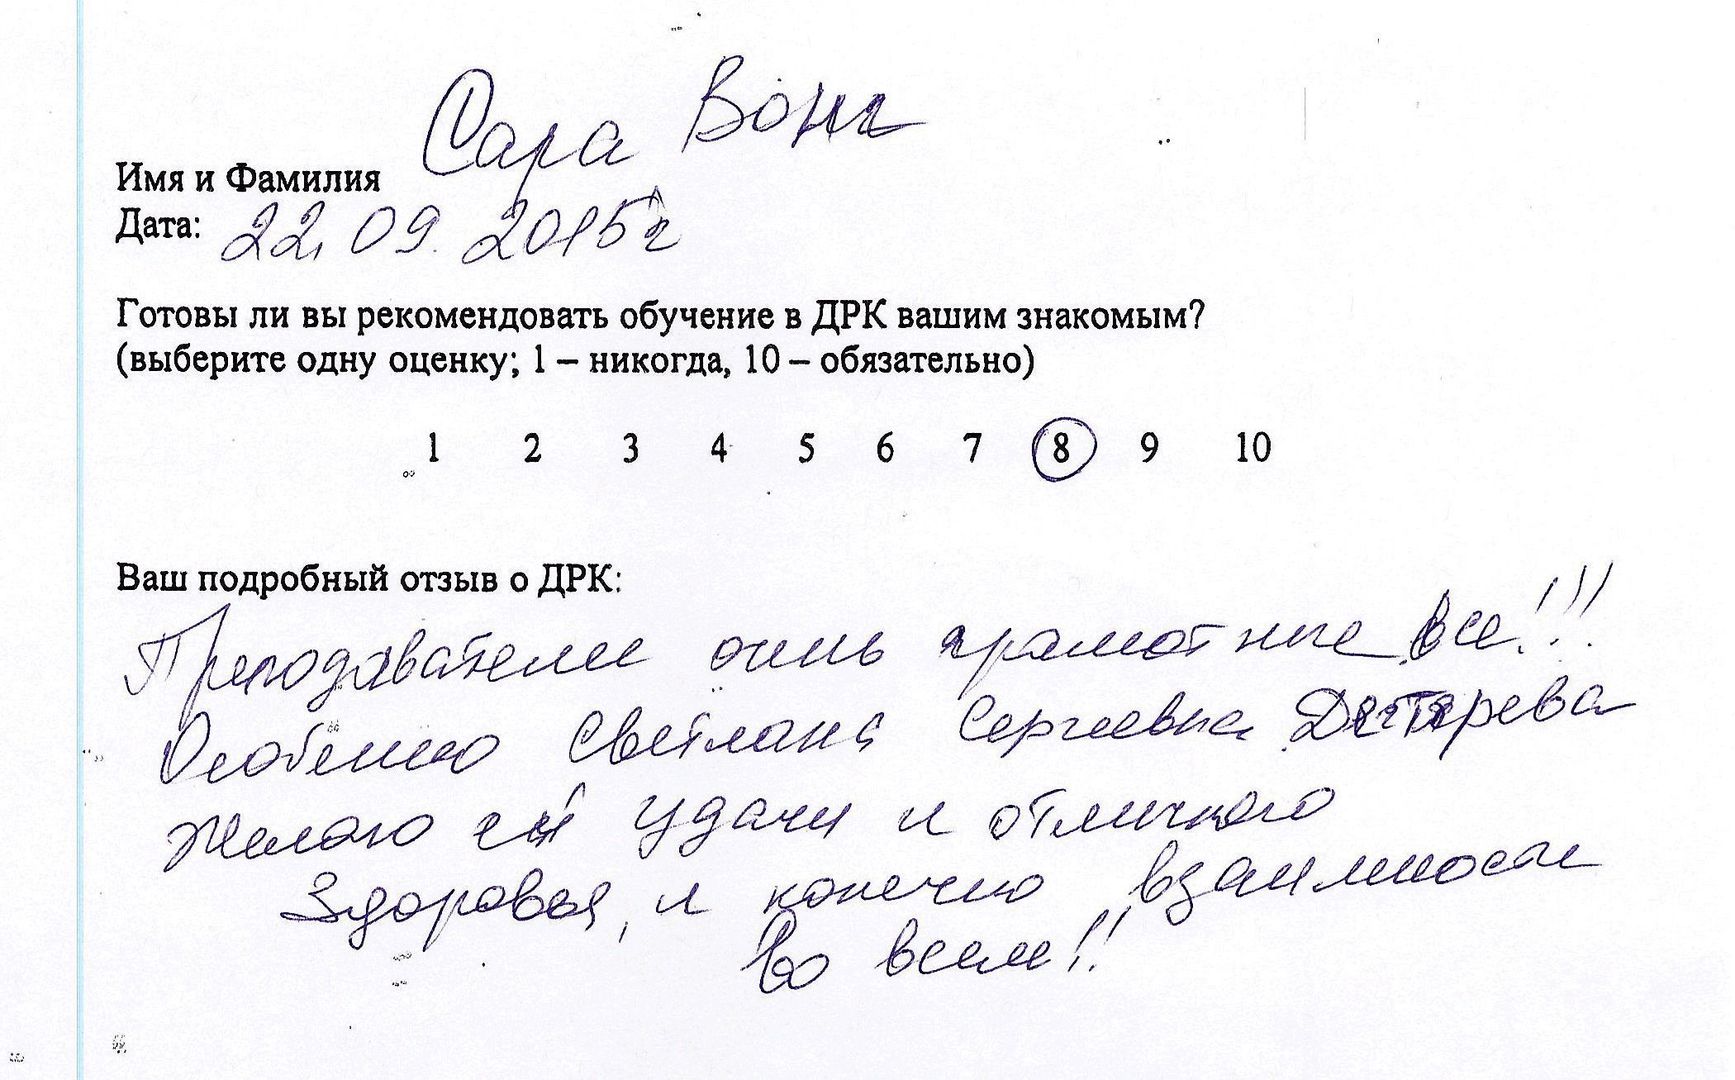 Сара Вонг
Имя и Фамилия
Дата: 22.09.2015г
Готовы ли вы рекомендовать обучение в ДРК вашим знакомым?
(выберите одну оценку; 1 – никогда, 10 – обязательно)
1 2 3 4 5 6 7 8 9 10
Ваш подробный отзыв о ДРК:
Преподаватели очень грамотные все!!!
Особенно Светлана Сергеевна
Желаю ей удачи и отличного
здоровья, и конечно взаимности
во всем!!